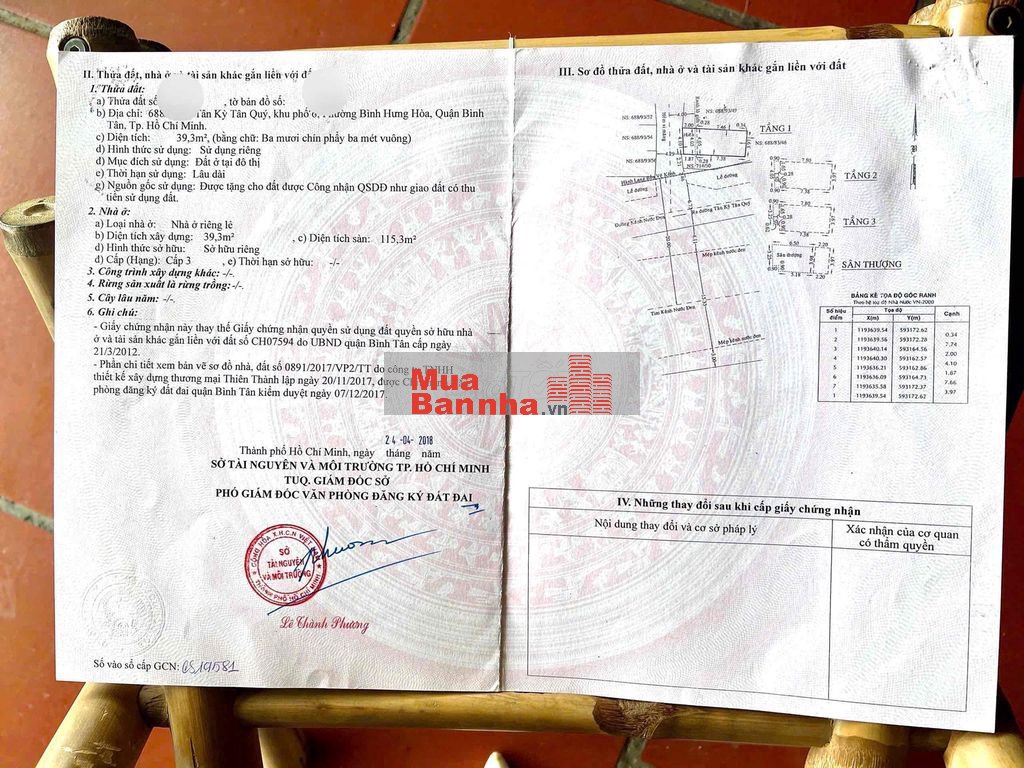 II. Thửa đất, nhà ở và tài sản khác gắn liền với đất
1. Thửa đất:
a) Thửa đất số , tờ bản đồ số:
b) Địa chỉ: 688 Tân Kỳ Tân Quý, khu phố 6, Phường Bình Hưng Hòa, Quận Bình
Tân, Tp. Hồ Chí Minh.
c) Diện tích: 39,3m², (bằng chữ: Ba mươi chín phẩy ba mét vuông)
d) Hình thức sử dụng: Sử dụng riêng
đ) Mục đích sử dụng: Đất ở tại đô thị
e) Thời hạn sử dụng: Lâu dài
g) Nguồn gốc sử dụng: Được tặng cho đất được Công nhận QSDĐ như giao đất có thu
tiền sử dụng đất.
2. Nhà ở:
a) Loại nhà ở: Nhà ở riêng lẻ
b) Diện tích xây dựng: 39,3m² , c) Diện tích sàn: 115,3m²
d) Hình thức sở hữu: Sở hữu riêng
đ) Cấp (Hạng): Cấp 3 , e) Thời hạn sở hữu: -/-
3. Công trình xây dựng khác: -/-.
4. Rừng sản xuất là rừng trồng: -/-.
5. Cây lâu năm: -/-.
6. Ghi chú:
- Giấy chứng nhận này thay thế Giấy chứng nhận quyền sử dụng đất quyền sở hữu nhà
ở và tài sản khác gắn liền với đất số CH07594 do UBND quận Bình Tân cấp ngày
21/3/2012.
- Phần chi tiết xem bản vẽ sơ đồ nhà, đất số 0891/2017/VP2/TT do công ty TNHH
thiết kế xây dựng thương mại Thiên Thành lập ngày 20/11/2017, được
phòng đăng ký đất đai quận Bình Tân kiểm duyệt ngày 07/12/2017.
24 -04- 2018
Thành phố Hồ Chí Minh, ngày tháng năm
SỞ TÀI NGUYÊN VÀ MÔI TRƯỜNG TP. HỒ CHÍ MINH
TUQ. GIÁM ĐỐC SỞ
PHÓ GIÁM ĐỐC VĂN PHÒNG ĐĂNG KÝ ĐẤT ĐAI
CỘNG HÒA X.H.C.N VIỆT NAM
SỞ
TÀI NGUYÊN
VÀ MÔI TRƯỜNG
THÀNH PHỐ HỒ CHÍ MINH
Lê Thành Phương
Số vào sổ cấp GCN: CS19581
Mua
Bannha.vn
III. Sơ đồ thửa đất, nhà ở và tài sản khác gắn liền với đất
NS: 688/93/57
NS: 688/93/54
NS: 688/93/56
NS: 688/93/48
NS: 714/50
TẦNG 1
TẦNG 2
TẦNG 3
SÂN THƯỢNG
Sân thượng
Hành Lang Bảo Vệ Kênh
Lề đường
Lề đường
Đường Kênh Nước Đen
Ra đường Tân Kỳ Tân Quý
Mép kênh nước đen
Tim Kênh Nước Đen
Mép kênh nước đen
BẢNG KÊ TỌA ĐỘ GÓC RANH
Theo hệ tọa độ Nhà Nước VN-2000
Số hiệu điểm Tọa độ Cạnh
X(m) Y(m)
1 1193639.54 593172.62
0.34
2 1193639.56 593172.28
7.74
3 1193640.14 593164.56
2.00
4 1193640.30 593162.57
4.10
5 1193636.21 593162.86
1.87
6 1193636.09 593164.73
7.66
7 1193635.58 593172.37
3.97
1 1193639.54 593172.62
IV. Những thay đổi sau khi cấp giấy chứng nhận
Nội dung thay đổi và cơ sở pháp lý
Xác nhận của cơ quan
có thẩm quyền